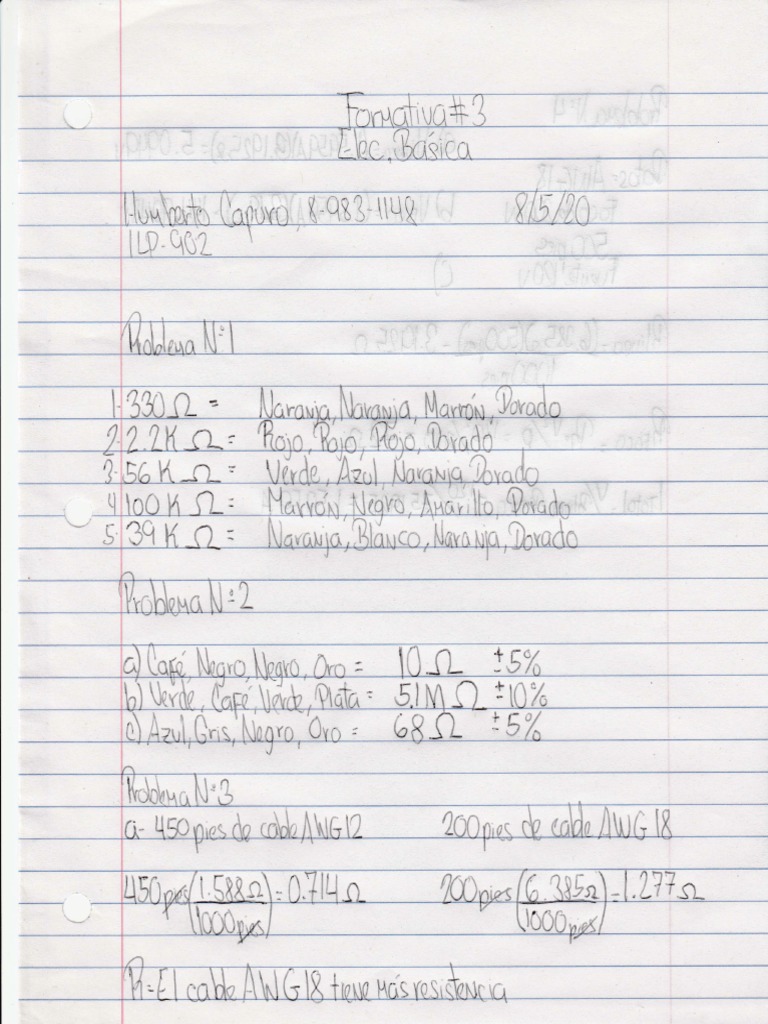 Formativa #3
Elec. Básica
Humberto Capuro 8-983-1148 8/5/20
1LP-902
Problema N°1
1. 330 Ω = Naranja, Naranja, Marrón, Dorado
2. 2.2K Ω = Rojo, Rojo, Rojo, Dorado
3. 56 K Ω = Verde, Azul, Naranja, Dorado
4. 100 K Ω = Marrón, Negro, Amarillo, Dorado
5. 39 K Ω = Naranja, Blanco, Naranja, Dorado
Problema N°2
a) Café, Negro, Negro, Oro = 10 Ω ±5%
b) Verde, Café, Verde, Plata = 5.1M Ω ±10%
c) Azul, Gris, Negro, Oro = 68 Ω ±5%
Problema N°3
a- 450 pies de cable AWG 12 200 pies de cable AWG 18
450 pies (1.588 Ω / 1000 pies) = 0.714 Ω 200 pies (6.385 Ω / 1000 pies) = 1.277 Ω
R= El cable AWG 18 tiene más resistencia